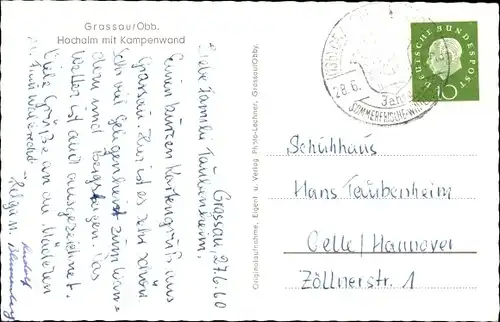 Grassau/Obb.
Hochalm mit Kampenwand
Grassau 27.6.60
Liebe Familie Taubenheim,
Einen kurzen Kartengruß aus
Grassau. Hier ist es sehr schön
Sehr viel Gelegenheit zum Wan-
dern und Bergsteigen. Das
Wetter ist auch ausgezeichnet.
Viele Grüße an die Mädeln
Helga u. Rudolf
Originalaufnahme, Eigent u. Verlag Photo-Lechner, Grassau/Obby.
28.6.
SOMMERFRISCHE
DEUTSCHE BUNDESPOST
10
Schuhhaus
Hans Taubenheim
Celle / Hannover
Zöllnerstr. 1